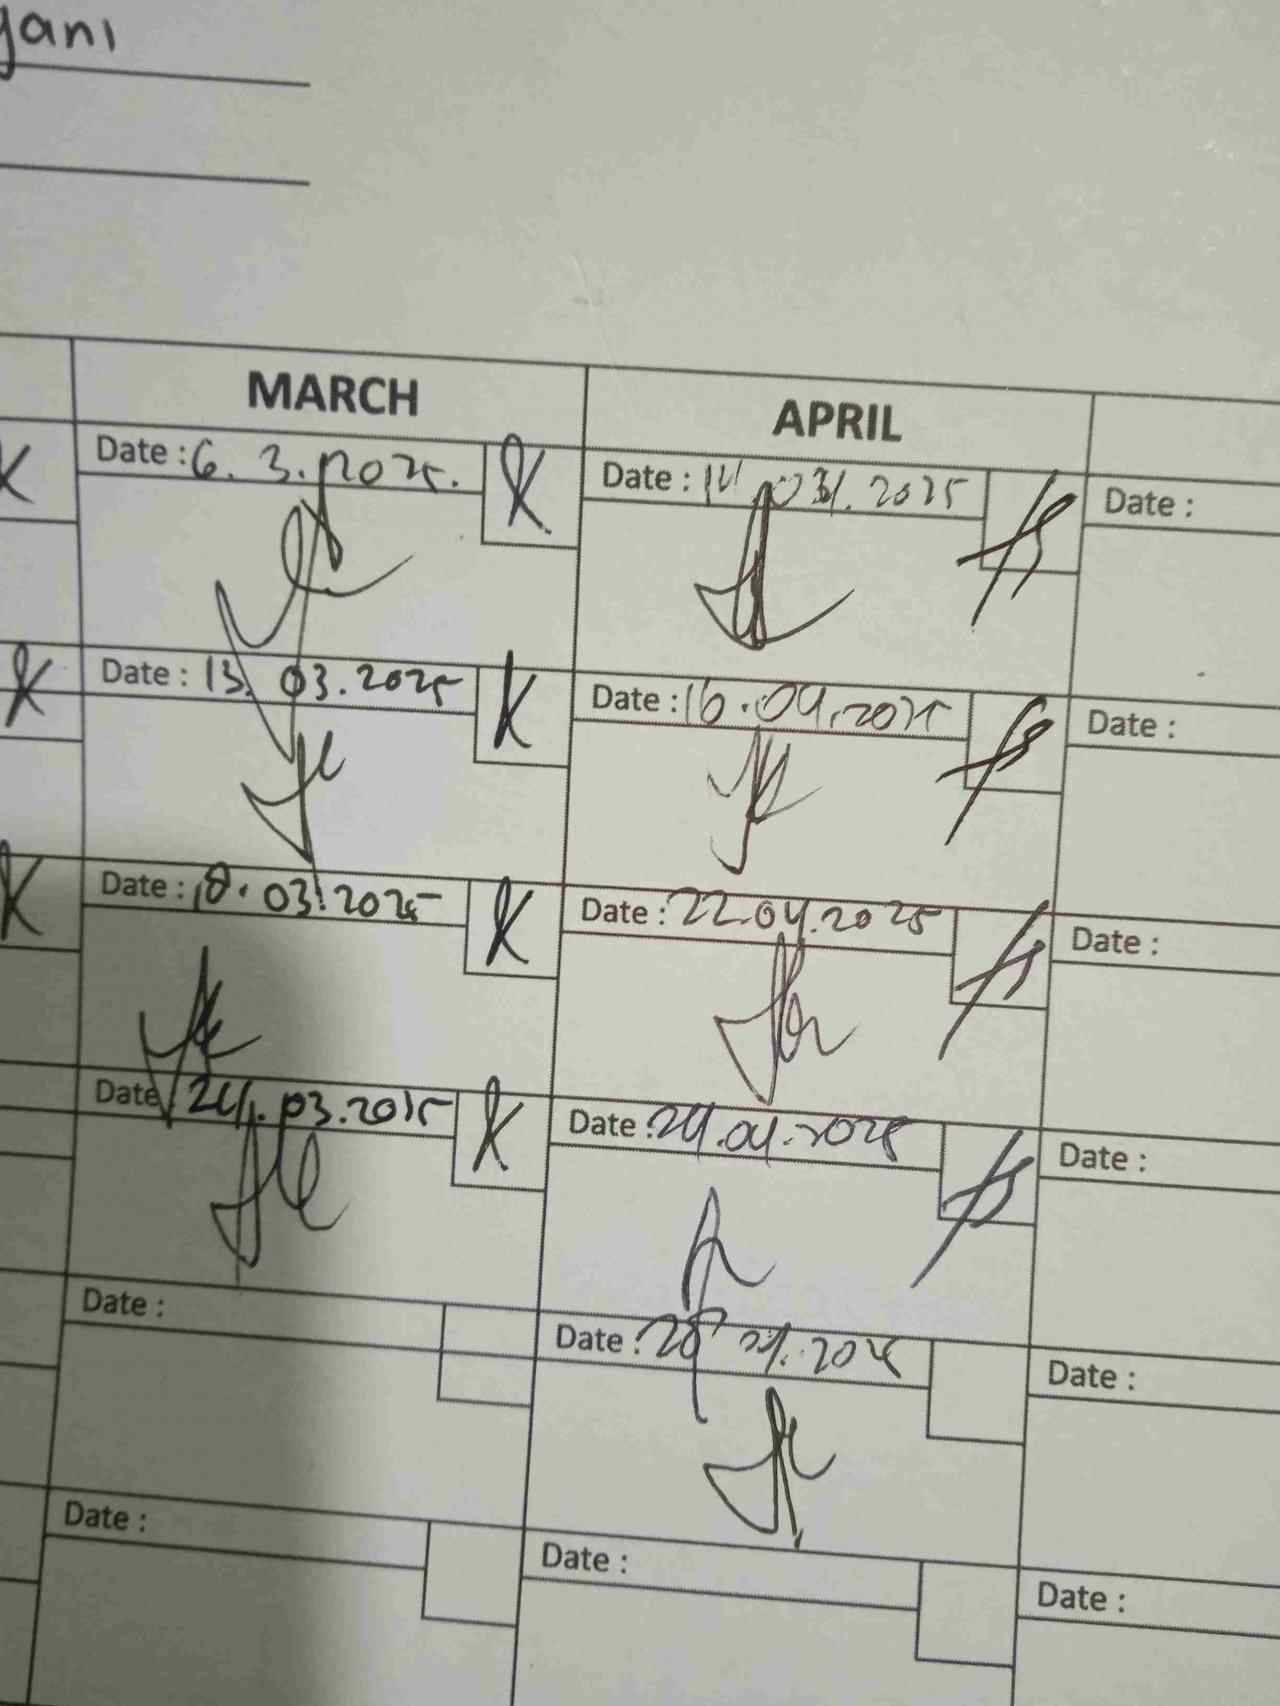 yani
MARCH APRIL
Date : 6. 3. 2025. Date : 2025 Date :
Date : 13. 03. 2025 Date : 16. 04. 2025 Date :
Date : 18. 03. 2025 Date : 22. 04. 2025 Date :
Date 24. 03. 2025 Date : 24. 04. 2025 Date :
Date : Date : 28 04. 2025 Date :
Date : Date : Date :